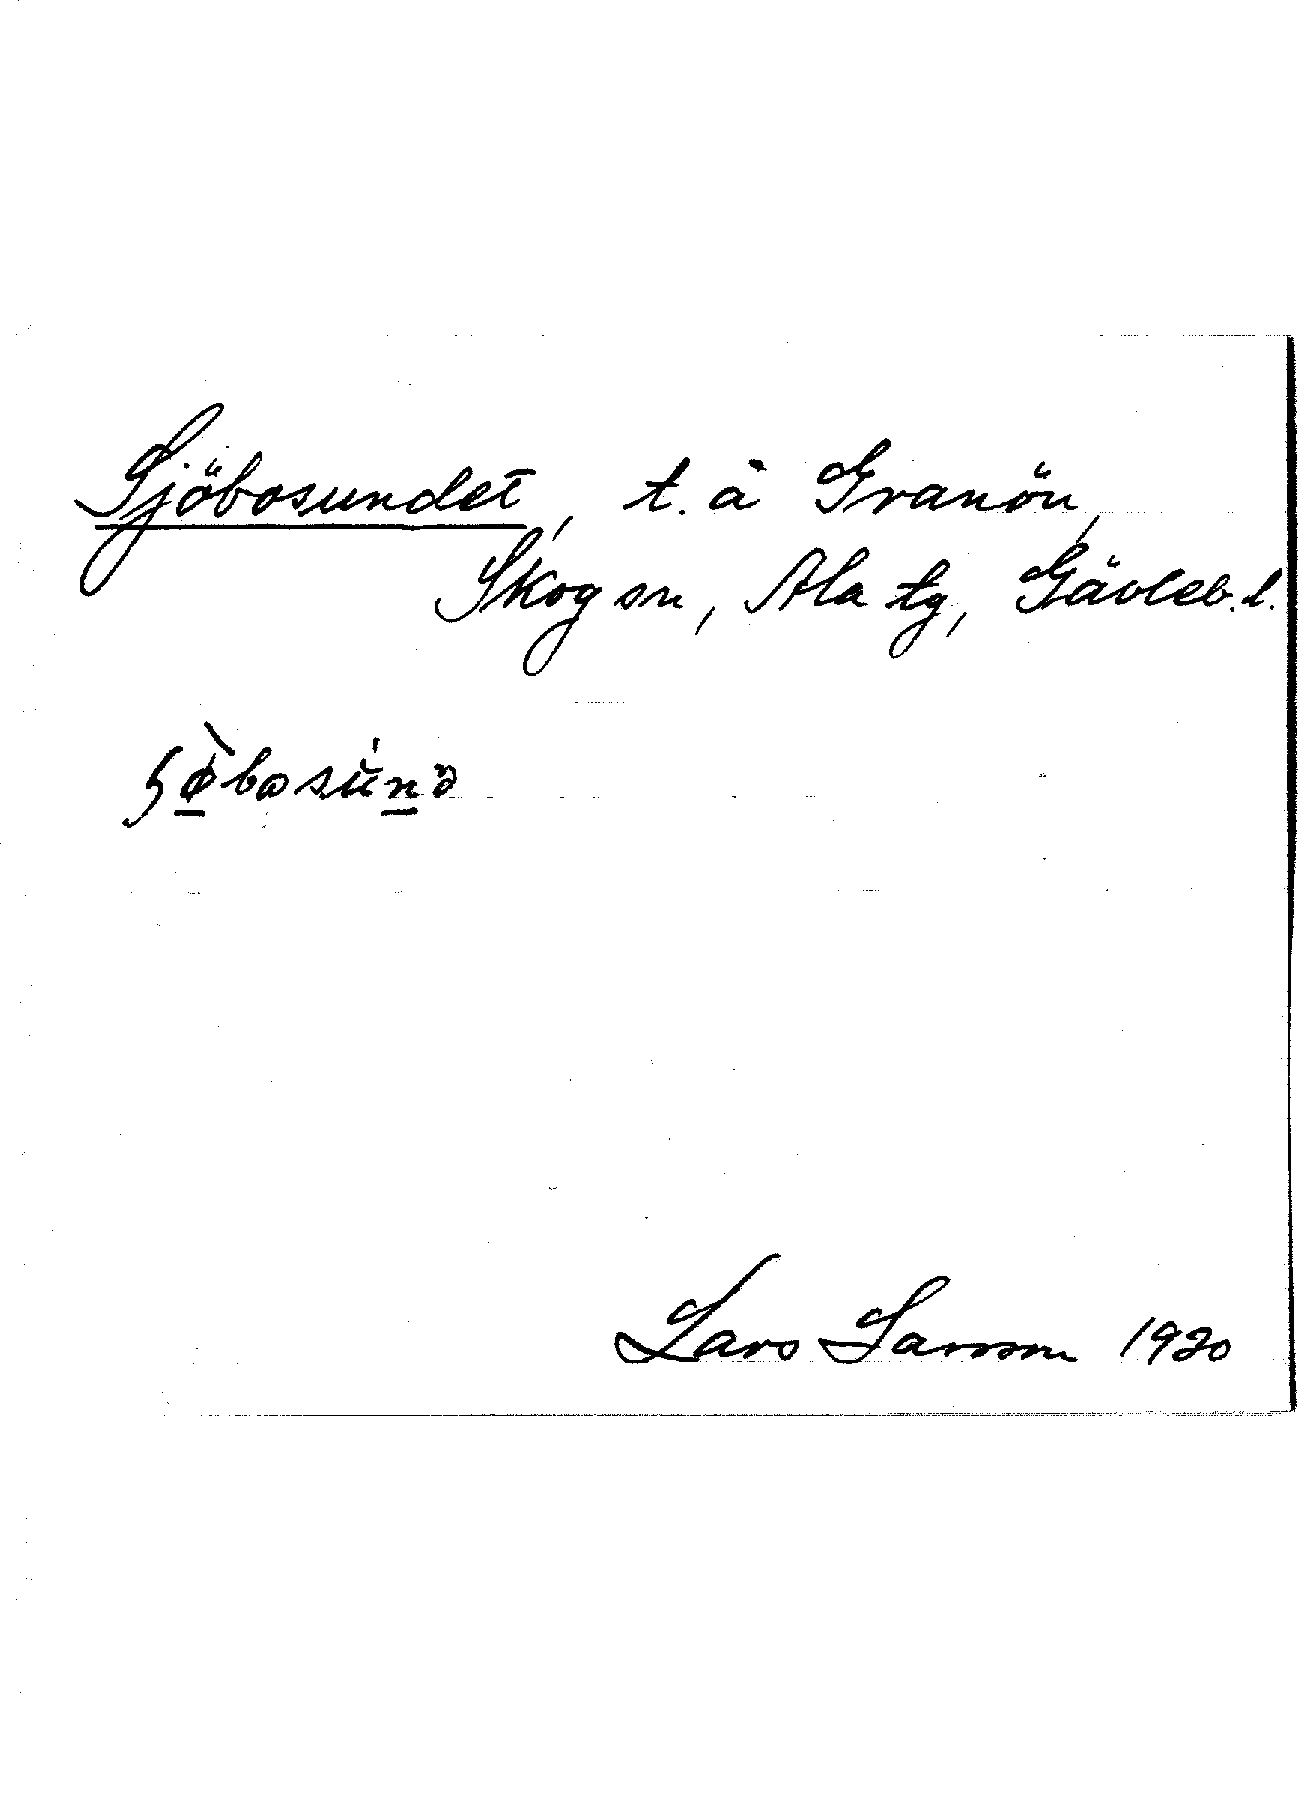 Sjöbosundet, t. å Granön,
Skog sn, Ala tg, Gävleb. l.
Lars Larsson 1930